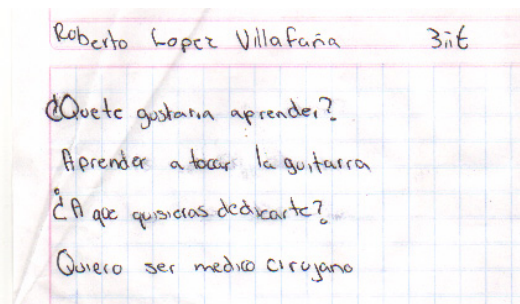 Roberto Lopez Villafaña 3iit
¿Quete gustaria aprender?
Aprender a tocar la guitarra
¿A que quisieras dedicarte?
Quiero ser medico cirujano